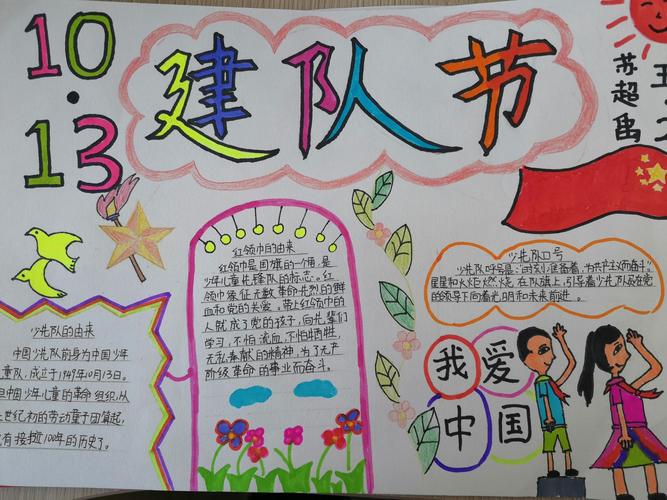 10·13
建队节
五
二
苏超禹
少先队的由来
中国少先队前身为中国少年
童队,成立于1949年10月13日。
但中国少年儿童的革命组织,从
世纪初的劳动童子团算起,
有接 100年的历史了。
红领巾的由来
红领巾是国旗的一个角,是
少年儿童先锋队的标志。红
领巾象征无数革命先烈的鲜
血和党的关爱。带上红领巾的
人就成了党的孩子,向先辈们
学习,不怕流血,不怕牺牲,
无私奉献的精神,为了无产
阶级革命的事业而奋斗。
少先队口号
少先队呼号是:"时刻准备着,为共产主义而奋斗".
星星和火炬燃烧,在队旗上,引导着少先队员在党
的领导下向着光明和未来前进。
我爱
中国